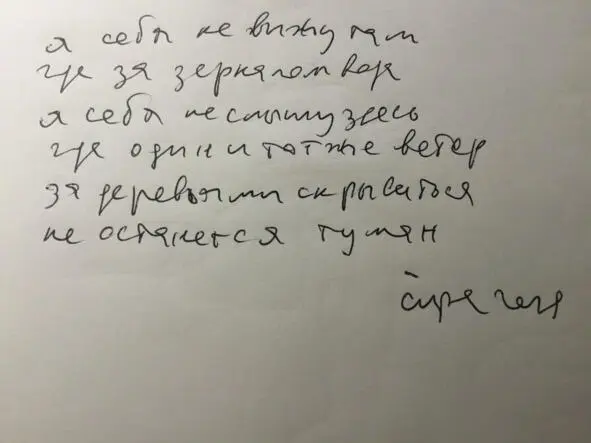 я себя не вижу там
где за зеркалом вода
я себя не слышу здесь
где один и тот же ветер
за деревьями скрываться
не останется туман